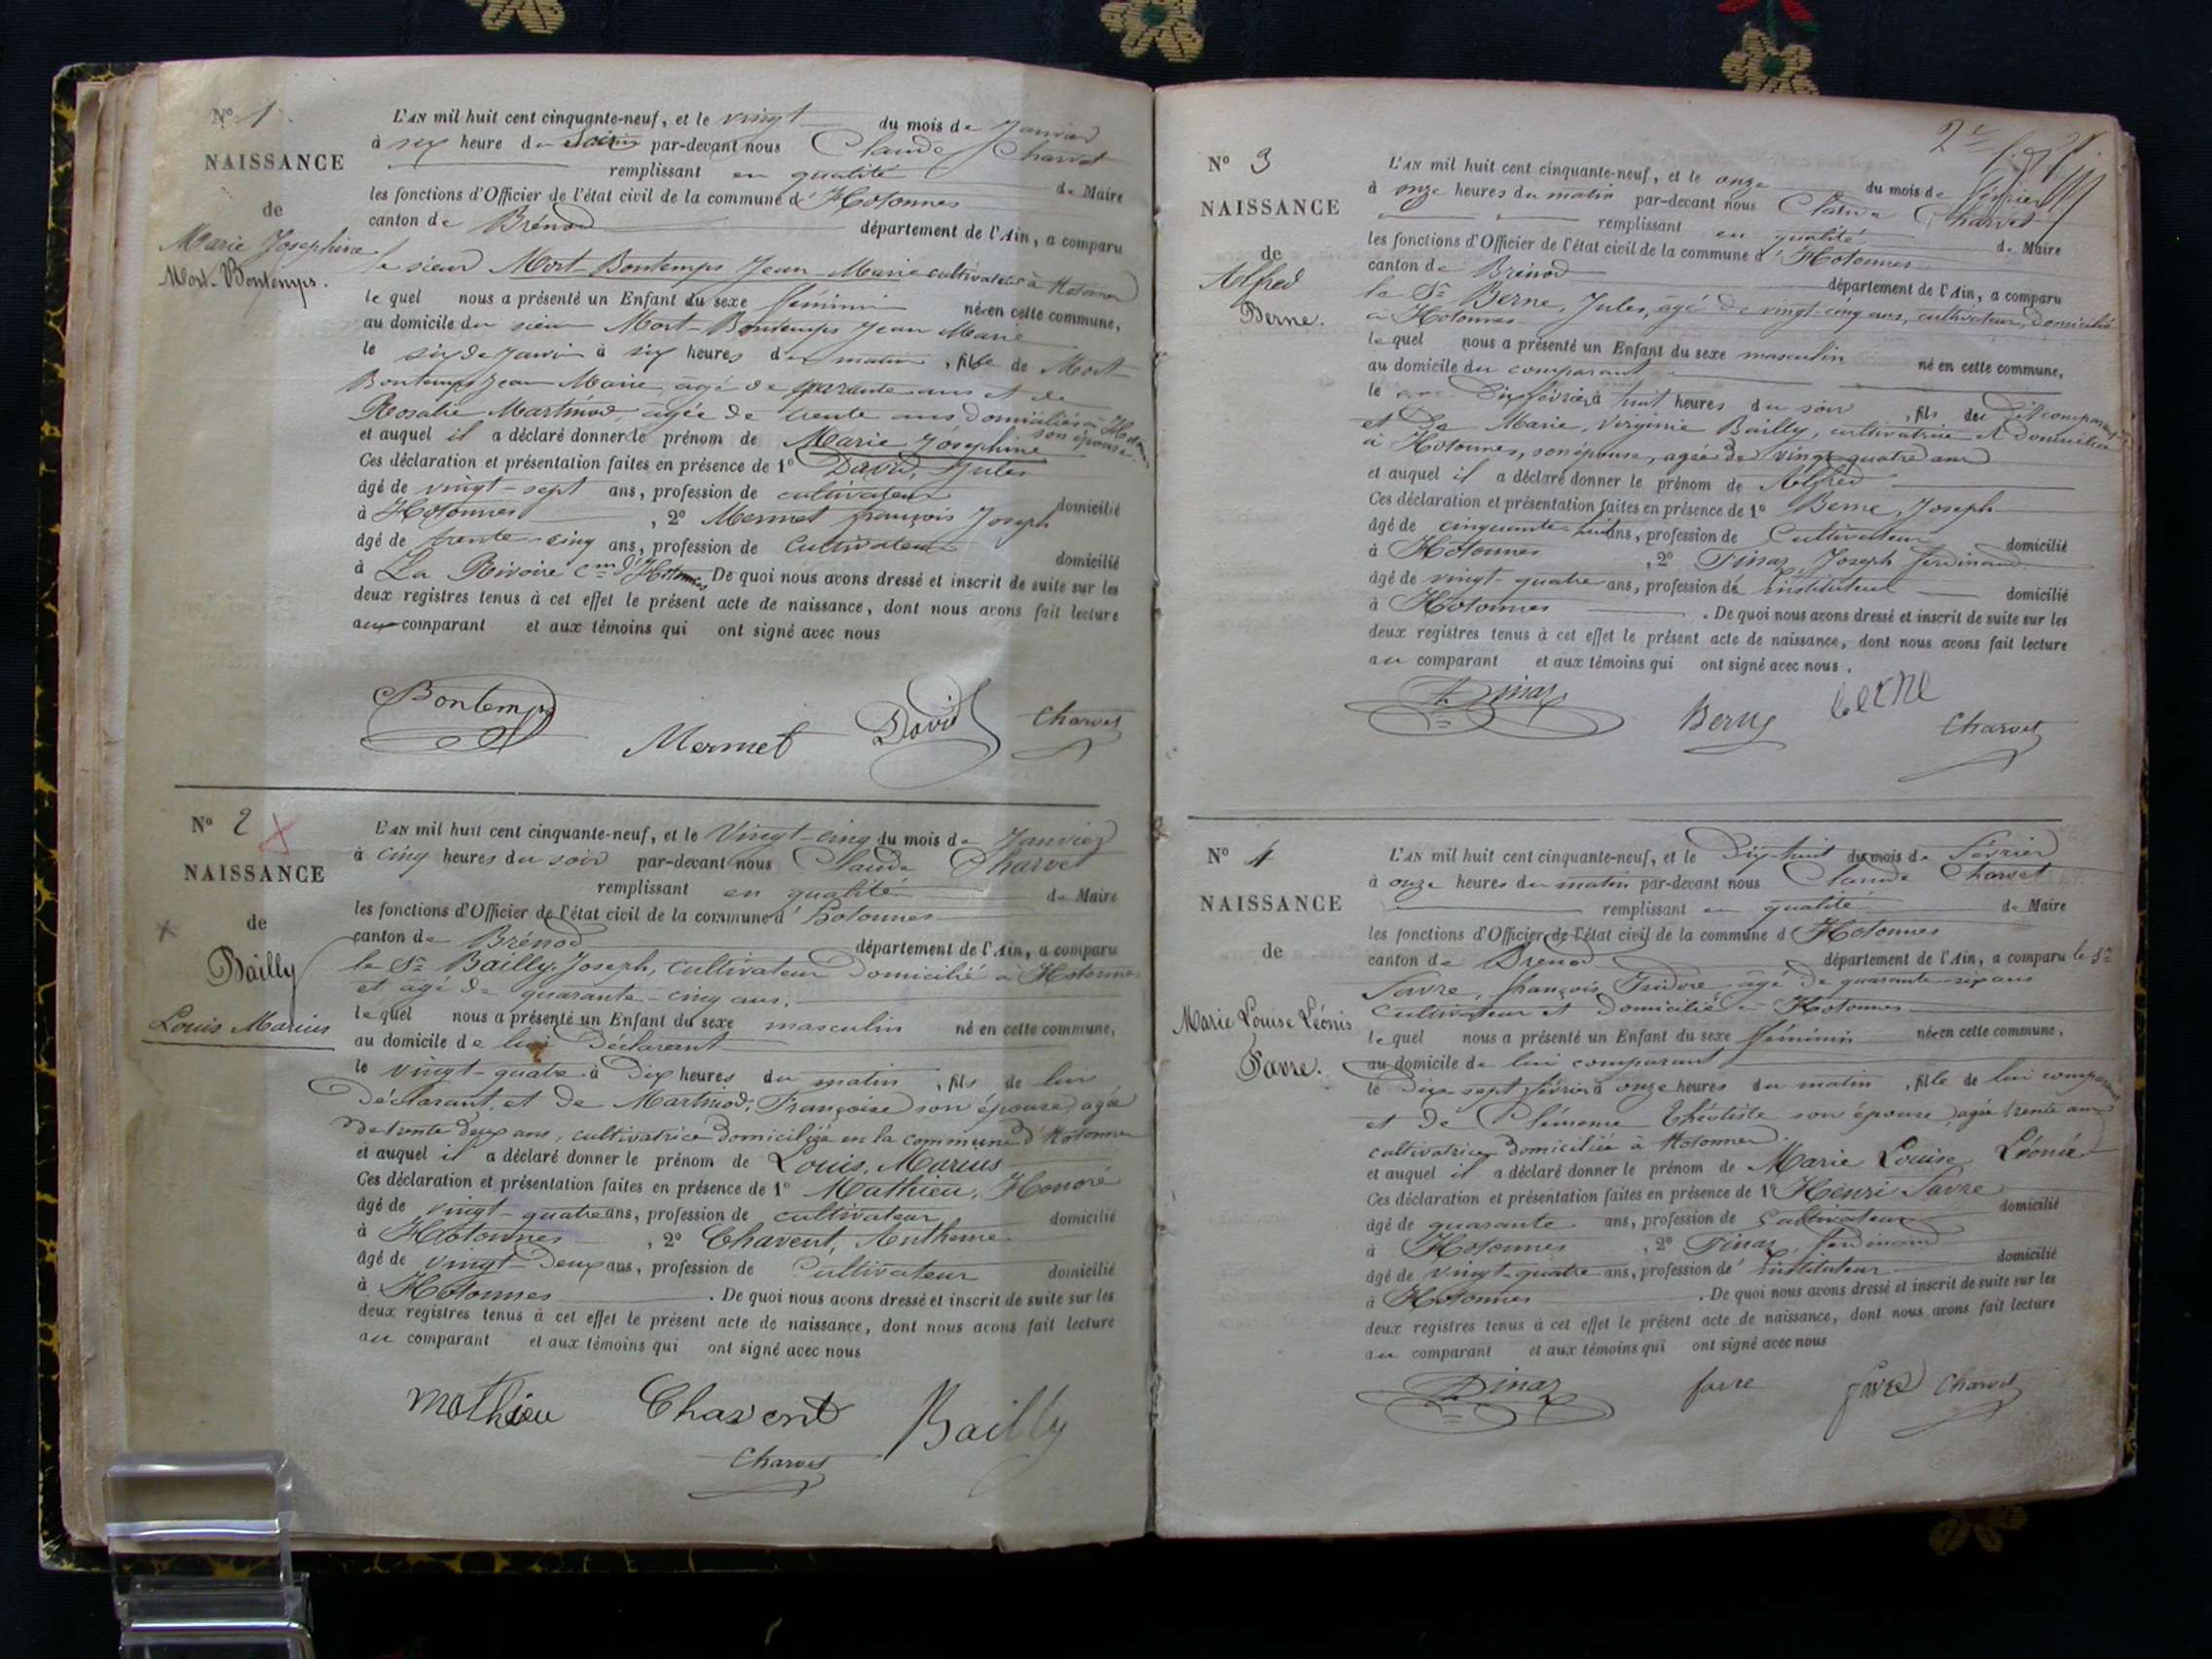 N° 1
NAISSANCE
de
Marie Josephine
Mort-Bontemps.
L'AN mil huit cent cinquante-neuf, et le vingt du mois de Janvier
à six heure du soir par-devant nous Claude Charvet
remplissant en qualité de Maire
les fonctions d'Officier de l'état civil de la commune d'Hotonnes
canton de Brénod département de l'Ain, a comparu
le sieur Mort-Bontemps Jean-Marie cultivateur à Hotonnes
le quel nous a présenté un Enfant du sexe féminin née en cette commune,
au domicile du sieur Mort-Bontemps Jean Marie
le six de Janvier à six heures du matin, fille de Mort
Bontemps Jean Marie, agé de quarante ans et de
Rosalie Martinod agée de trente ans domiciliés à Hotonnes
son épouse
et auquel il a déclaré donner le prénom de Marie Joséphine
Ces déclaration et présentation faites en présence de 1° David, Jules
âgé de vingt-sept ans, profession de cultivateur domicilié
à Hotonnes, 2° Mermet françois Joseph
âgé de trente-cinq ans, profession de Cultivateur domicilié
à La Rivoire cne d'Hotonnes De quoi nous avons dressé et inscrit de suite sur les
deux registres tenus à cet effet le présent acte de naissance, dont nous avons fait lecture
au comparant et aux témoins qui ont signé avec nous
Bontemps Mermet David Charvet
N° 2
NAISSANCE
de
Bailly
Louis Marius
L'AN mil huit cent cinquante-neuf, et le Vingt-cinq du mois de Janvier
à cinq heures du soir par-devant nous Claude Charvet
remplissant en qualité de Maire
les fonctions d'Officier de l'état civil de la commune d'Hotonnes
canton de Brénod département de l'Ain, a comparu
le Sr Bailly Joseph, Cultivateur Domicilié à Hotonnes
et agé de quarante-cinq ans.
le quel nous a présenté un Enfant du sexe masculin né en cette commune,
au domicile de lui Déclarant
le vingt-quatre à Dix heures du matin, fils de lui
Déclarant, et de Martinod, Françoise son épouse, agée
de trente deux ans, cultivatrice domiciliée en la commune d'Hotonnes
et auquel il a déclaré donner le prénom de Louis, Marius
Ces déclaration et présentation faites en présence de 1° Mathieu, Honoré
âgé de vingt-quatre ans, profession de cultivateur domicilié
à Hotonnes, 2° Chavent, Anthême
âgé de vingt-Deux ans, profession de Cultivateur domicilié
à Hotonnes. De quoi nous avons dressé et inscrit de suite sur les
deux registres tenus à cet effet le présent acte de naissance, dont nous avons fait lecture
au comparant et aux témoins qui ont signé avec nous
Mathieu Chavent Bailly
Charvet
N° 3
NAISSANCE
de
Alfred
Berne.
L'AN mil huit cent cinquante-neuf, et le onze du mois de février
à onze heures du matin par-devant nous Claude Charvet
remplissant en qualité de Maire
les fonctions d'Officier de l'état civil de la commune d'Hotonnes
canton de Brénod département de l'Ain, a comparu
le Sr Berne, Jules, agé de vingt-cinq ans, cultivateur, domicilié
à Hotonnes
le quel nous a présenté un Enfant du sexe masculin né en cette commune,
au domicile du comparant
le Dix février à huit heures du soir, fils du dit comparant
et De Marie, Virginie Bailly, cultivatrice et Domiciliée
à Hotonnes, son épouse, agée de vingt quatre ans
et auquel il a déclaré donner le prénom de Alfred
Ces déclaration et présentation faites en présence de 1° Berne, Joseph
âgé de cinquante-huit ans, profession de Cultivateur domicilié
à Hotonnes, 2° Pinaz, Joseph ferdinand
âgé de vingt-quatre ans, profession de instituteur domicilié
à Hotonnes. De quoi nous avons dressé et inscrit de suite sur les
deux registres tenus à cet effet le présent acte de naissance, dont nous avons fait lecture
au comparant et aux témoins qui ont signé avec nous.
Pinaz Berne berne Charvet
N° 4
NAISSANCE
de
Marie Louise Léonie
Favre.
L'AN mil huit cent cinquante-neuf, et le Dix-huit du mois de Février
à onze heures du matin par-devant nous Claude Charvet
remplissant en qualité de Maire
les fonctions d'Officier de l'état civil de la commune d'Hotonnes
canton de Brenod département de l'Ain, a comparu le Sr
Favre, françois Isidore agé de quarante-six ans
Cultivateur et Domicilié à Hotonnes
le quel nous a présenté un Enfant du sexe féminin née en cette commune,
au domicile de lui comparant
le Dix sept février à onze heures du matin, fille de lui comparant
et De Clémence Théotiste son épouse, agée trente ans
cultivatrice domiciliée à Hotonnes.
et auquel il a déclaré donner le prénom de Marie Louise Léonie
Ces déclaration et présentation faites en présence de 1° Henri Favre
âgé de quarante ans, profession de Cultivateur domicilié
à Hotonnes, 2° Pinaz, ferdinand
âgé de vingt-quatre ans, profession de instituteur domicilié
à Hotonnes. De quoi nous avons dressé et inscrit de suite sur les
deux registres tenus à cet effet le présent acte de naissance, dont nous avons fait lecture
au comparant et aux témoins qui ont signé avec nous
Pinaz favre favre Charvet